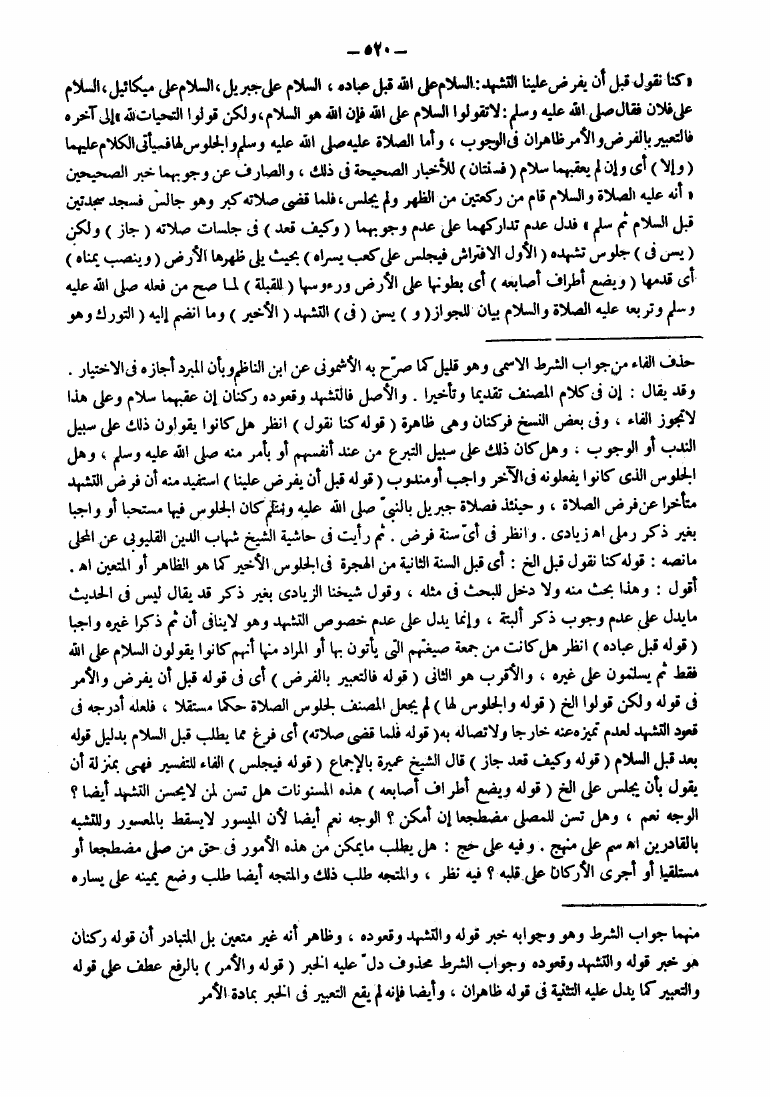 — ٥٢٠ —
«كنا نقول قبل أن يفرض علينا التشهد : السلام على الله قبل عباده ، السلام على جبريل ، السلام على ميكائيل ، السلام
على فلان فقال صلى الله عليه وسلم : لاتقولوا السلام على الله فإن الله هو السلام ، ولكن قولوا التحيات لله » إلى آخره
فالتعبير بالفرض والأمر ظاهران فى الوجوب ، وأما الصلاة عليه صلى الله عليه وسلم والجلوس لها فسيأتى الكلام عليهما
( وإلا ) أى وإن لم يعقبهما سلام ( فسنتان ) للأخبار الصحيحة فى ذلك ، والصارف عن وجوبهما خبر الصحيحين
« أنه عليه الصلاة والسلام قام من ركعتين من الظهر ولم يجلس ، فلما قضى صلاته كبر وهو جالس فسجد سجدتين
قبل السلام ثم سلم » فدل عدم تداركهما على عدم وجوبهما ( وكيف قعد ) فى جلسات صلاته ( جاز ) ولكن
( يسن فى ) جلوس تشهده ( الأول الافتراش فيجلس على كعب يسراه ) بحيث يلى ظهرها الأرض ( وينصب يمناه )
أى قدمها ( ويضع أطراف أصابعه ) أى بطونها على الأرض ورءوسها ( للقبلة ) لما صح من فعله صلى الله عليه
وسلم وتربعه عليه الصلاة والسلام بيان للجواز ( و ) يسن ( فى ) التشهد ( الأخير ) وما انضم إليه ( التورك وهو
حذف الفاء من جواب الشرط الاسمى وهو قليل كما صرّح به الأشمونى عن ابن الناظم وبأن المبرد أجازه فى الاختيار .
وقد يقال : إن فى كلام المصنف تقديما وتأخيرا . والأصل فالتشهد وقعوده ركنان إن عقبهما سلام وعلى هذا
لاتجوز الفاء ، وفى بعض النسخ فركنان وهى ظاهرة ( قوله كنا نقول ) انظر هل كانوا يقولون ذلك على سبيل
الندب أو الوجوب ، وهل كان ذلك على سبيل التبرع من عند أنفسهم أو بأمر منه صلى الله عليه وسلم ، وهل
الجلوس الذى كانوا يفعلونه فى الآخر واجب أومندوب ( قوله قبل أن يفرض علينا ) استفيد منه أن فرض التشهد
متأخرا عن فرض الصلاة ، وحينئذ فصلاة جبريل بالنبىّ صلى الله عليه وسلم كان الجلوس فيها مستحبا أو واجبا
بغير ذكر رملى اه زيادى . وانظر فى أىّ سنة فرض . ثم رأيت فى حاشية الشيخ شهاب الدين القليوبى عن المحلى
مانصه : قوله كنا نقول قبل الخ : أى قبل السنة الثانية من الهجرة فى الجلوس الأخير كما هو الظاهر أو المتعين اه .
أقول : وهذا بحث منه ولا دخل للبحث فى مثله ، وقول شيخنا الزيادى بغير ذكر قد يقال ليس فى الحديث
مايدل على عدم وجوب ذكر ألبتة ، وإنما يدل على عدم خصوص التشهد وهو لاينافى أن ثم ذكرا غيره واجبا
( قوله قبل عباده ) انظر هل كانت من جمعة صيغتهم التى يأتون بها أو المراد منها أنهم كانوا يقولون السلام على الله
فقط ثم يسلمون على غيره ، والأقرب هو الثانى ( قوله فالتعبير بالفرض ) أى فى قوله قبل أن يفرض والأمر
فى قوله ولكن قولوا الخ ( قوله والجلوس لها ) لم يجعل المصنف لجلوس الصلاة حكما مستقلا ، فلعله أدرجه فى
قعود التشهد لعدم تميزه عنه خارجا ولاتصاله به ( قوله فلما قضى صلاته ) أى فرغ مما يطلب قبل السلام بدليل قوله
بعد قبل السلام ( قوله وكيف قعد جاز ) قال الشيخ عميرة بالإجماع ( قوله فيجلس ) الفاء للتفسير فهى بمنزلة أن
يقول بأن يجلس على الخ ( قوله ويضع أطراف أصابعه ) هذه المسنونات هل تسن لمن لايحسن التشهد أيضا ؟
الوجه نعم ، وهل تسن للمصلى مضطجعا إن أمكن ؟ الوجه نعم أيضا لأن الميسور لايسقط بالمعسور وللتشبه
بالقادرين اه سم على منهج . وفيه على حج : هل يطلب مايمكن من هذه الأمور فى حق من صلى مضطجعا أو
مستلقيا أو أجرى الأركان على قلبه ؟ فيه نظر ، والمتجه طلب ذلك والمتجه أيضا طلب وضع يمينه على يساره
منهما جواب الشرط وهو وجوابه خبر قوله والتشهد وقعوده ، وظاهر أنه غير متعين بل المتبادر أن قوله ركنان
هو خبر قوله والتشهد وقعوده وجواب الشرط محذوف دلّ عليه الخبر ( قوله والأمر ) بالرفع عطف على قوله
والتعبير كما يدل عليه التثنية فى قوله ظاهران ، وأيضا فإنه لم يقع التعبير فى الخبر بمادة الأمر